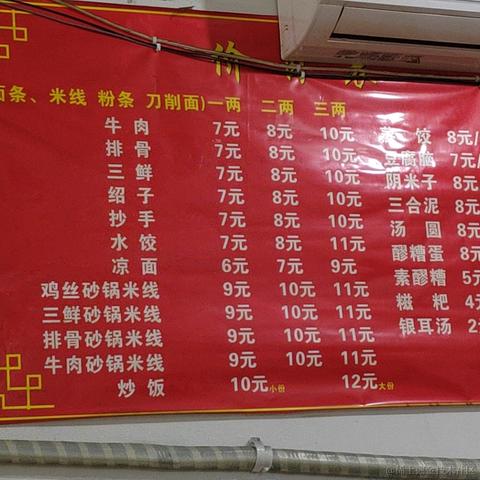 价 目 表
面条、米线 粉条 刀削面)一两 二两 三两
牛肉 7元 8元 10元
排骨 7元 8元 10元
三鲜 7元 8元 10元
绍子 7元 8元 10元
抄手 7元 8元 10元
水饺 7元 8元 11元
凉面 6元 7元 9元
鸡丝砂锅米线 9元 10元 11元
三鲜砂锅米线 9元 10元 11元
排骨砂锅米线 9元 10元 11元
牛肉砂锅米线 9元 10元 11元
炒饭 10元小份 12元大份
蒸饺 8元/
豆腐脑 7元/
阴米子 8元
三合泥 8元
汤圆 8元
醪糟蛋 8元
素醪糟 5元
糍粑 4元
银耳汤 2